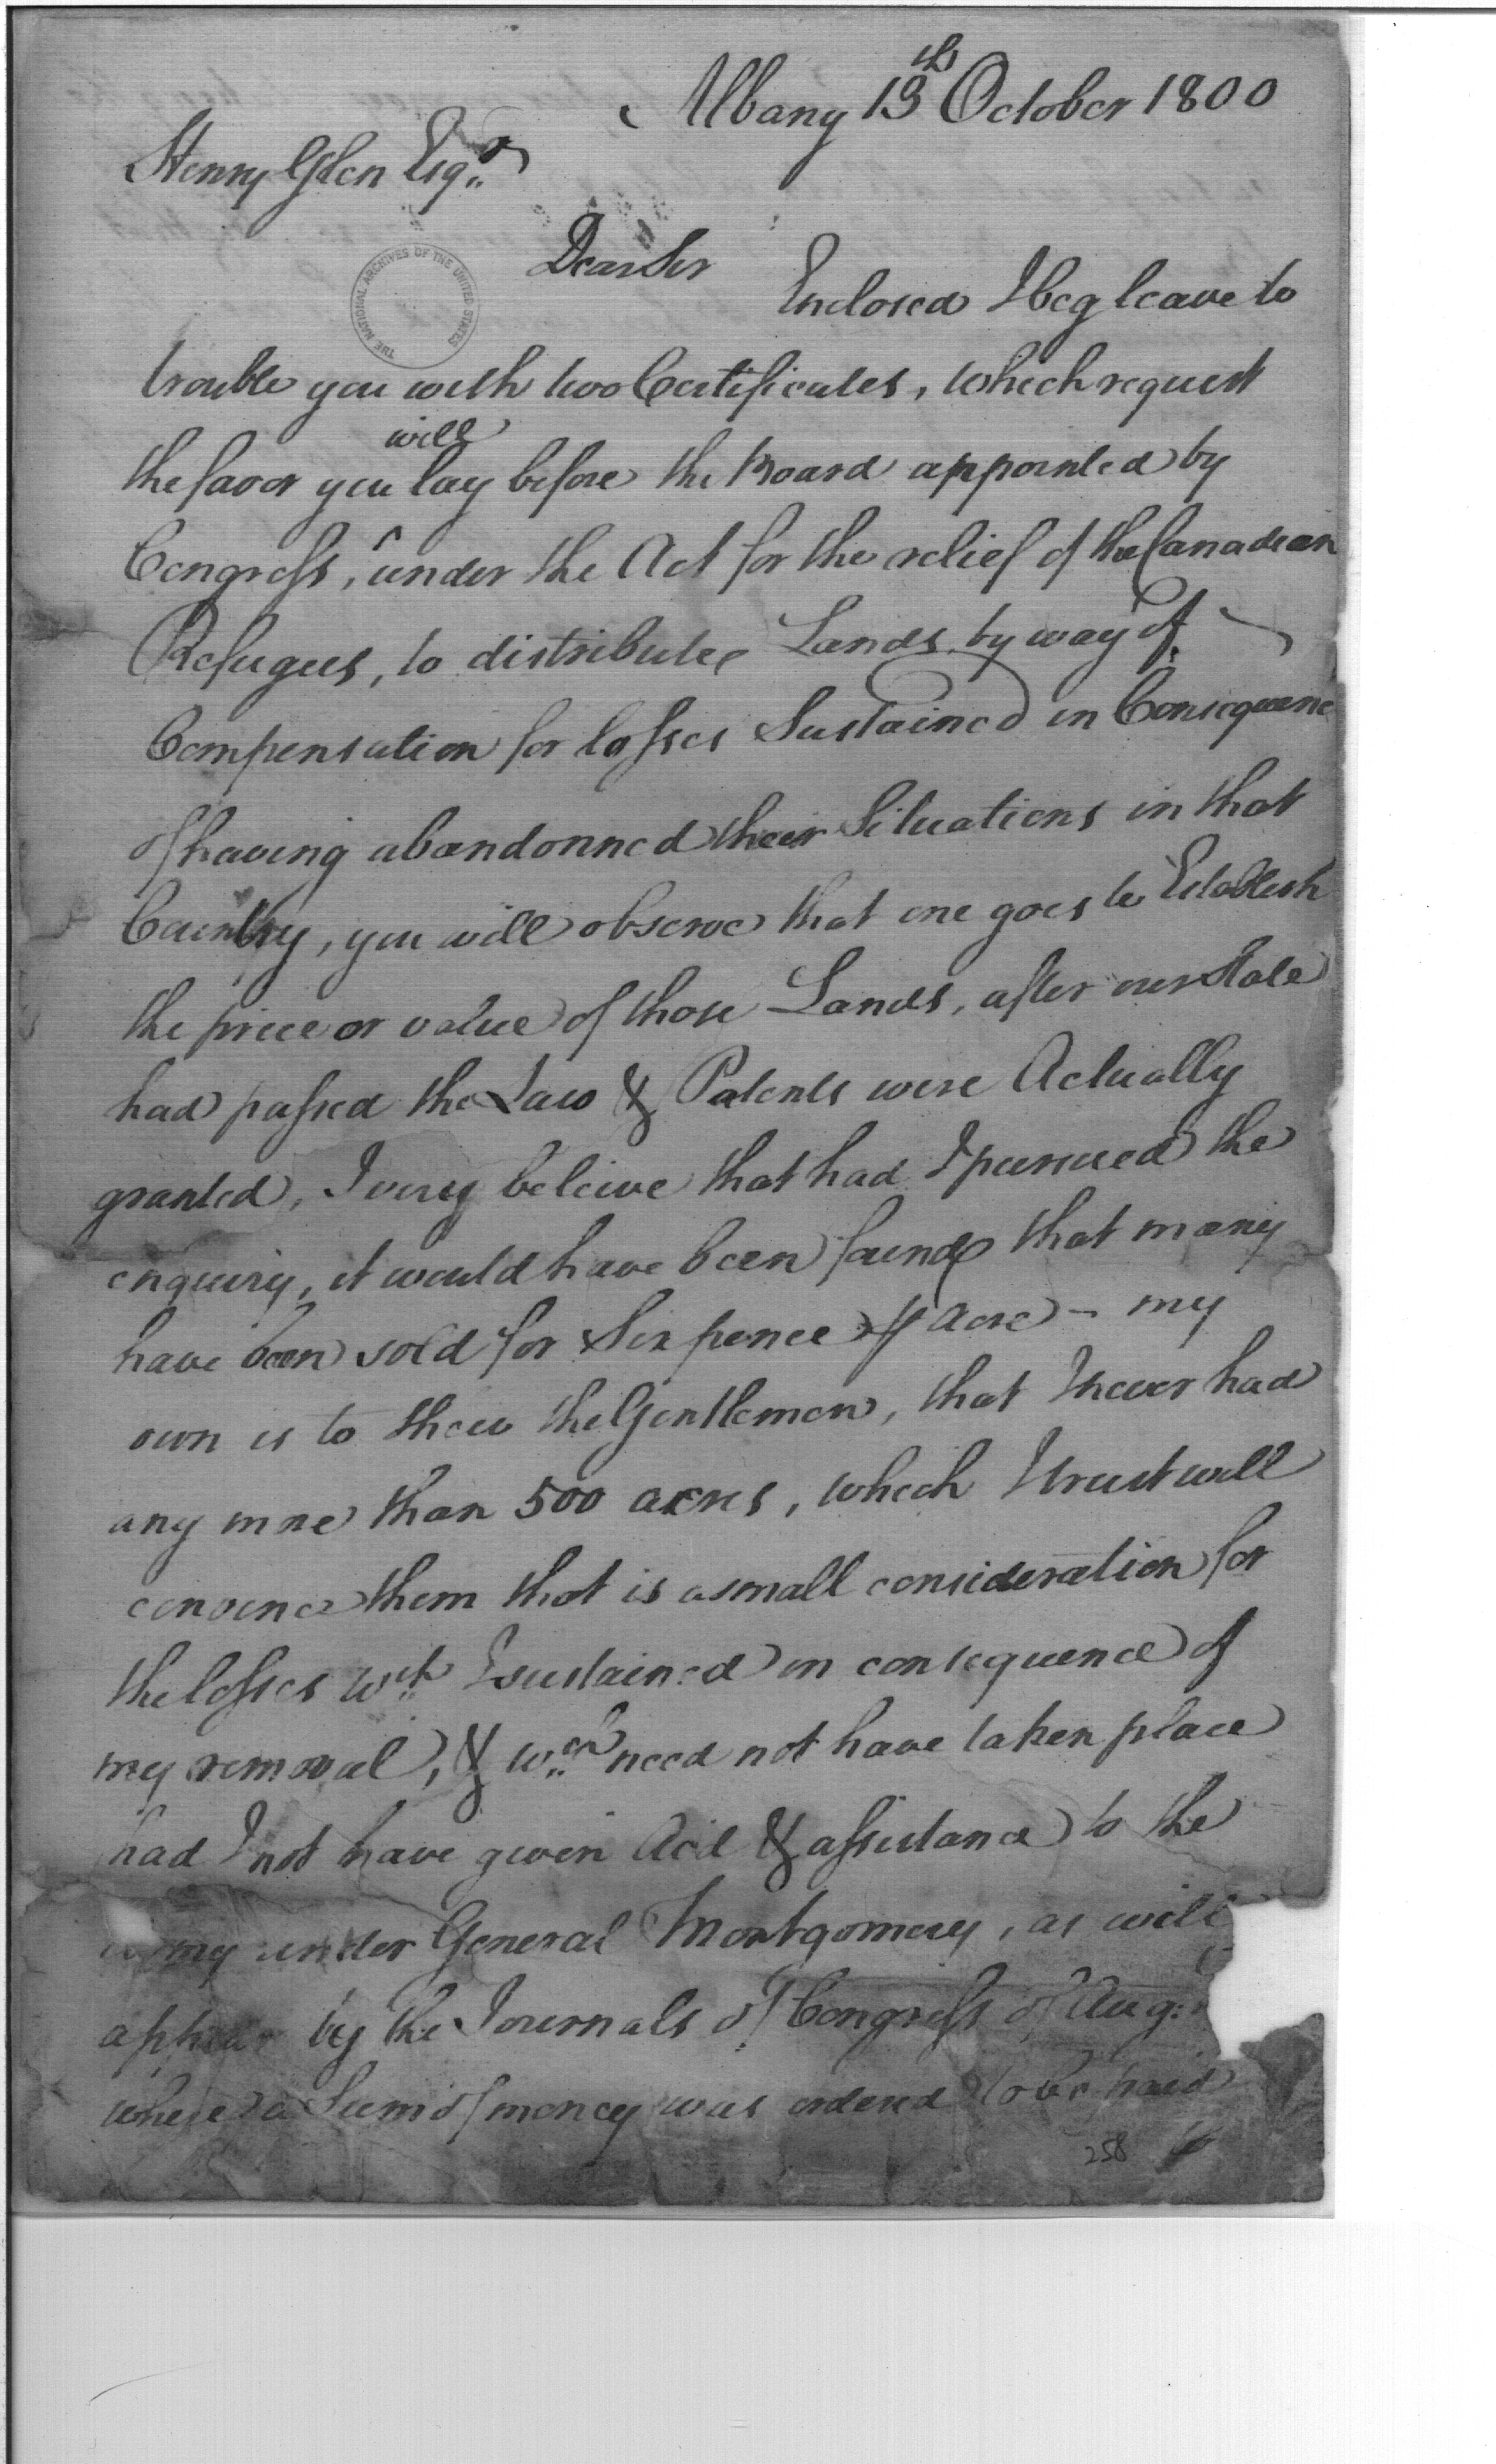 Albany 13th October 1800
Henry Glen Esqr.
THE NATIONAL ARCHIVES OF THE UNITED STATES
Dear Sir
Enclosed I beg leave to
trouble you with two Certificates, which request
will
the favor you lay before the Board appointed by
Congress, under the Act for the relief of the Canadian
Refugees, to distribute Lands by way of
Compensation for losses Sustained in Consequence
of having abandonned their Situations in that
Country, you will observe that one goes to Establish
the price or value of those Lands, after our State
had passed the Law & Patents were Actually
granted, I very beleive that had I pursued the
enquiry, it would have been found that many
have been sold for Six pence pr Acre - my
own is to shew the Gentlemen, that I never had
any more than 500 acres, which I trust will
convence them that is a small consideration for
the losses wch I sustained in consequence of
my removal, & wch need not have taken place
had I not have given Aid & assistance to the
army under General Montgomery, as will
appear by the Journals of Congress of Aug:
where a Sum of money was ordered to be paid
258